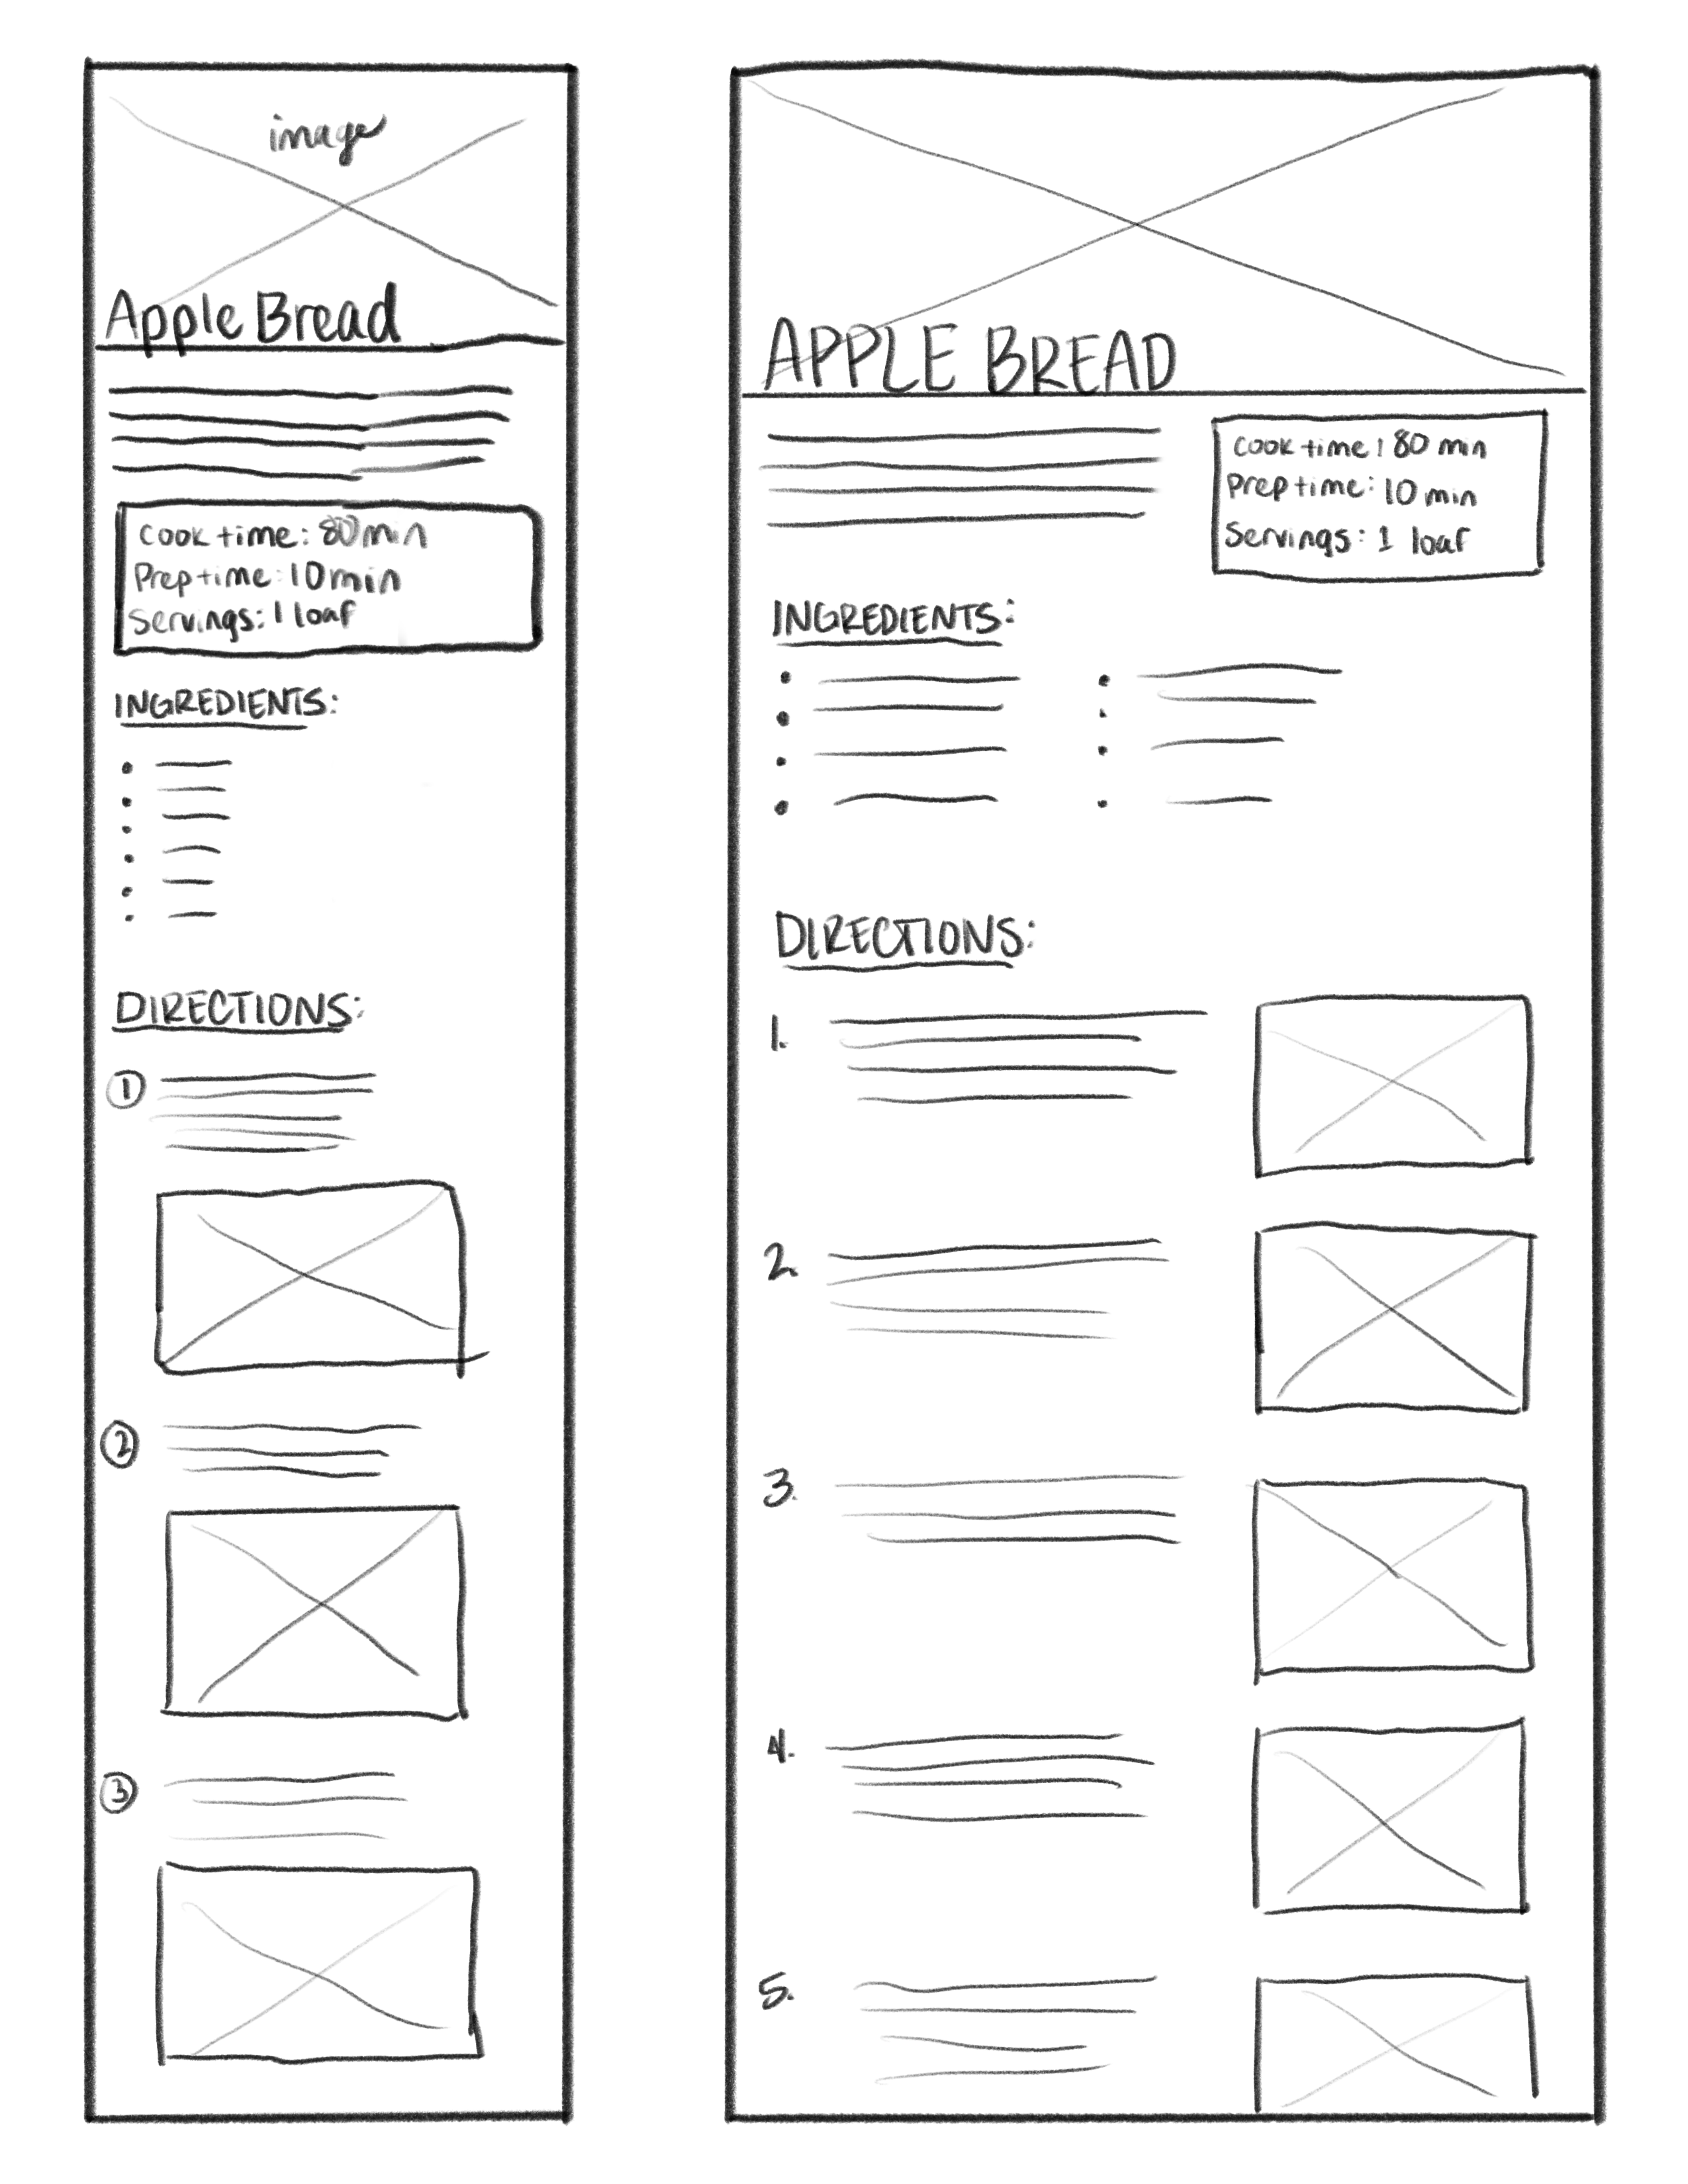 image
Apple Bread
Cook time: 80 min
Prep time: 10 min
Servings: 1 loaf
INGREDIENTS:
DIRECTIONS:
1
2
3
APPLE BREAD
Cook time: 80 min
Prep time: 10 min
Servings: 1 loaf
INGREDIENTS:
DIRECTIONS:
1.
2.
3.
4.
5.